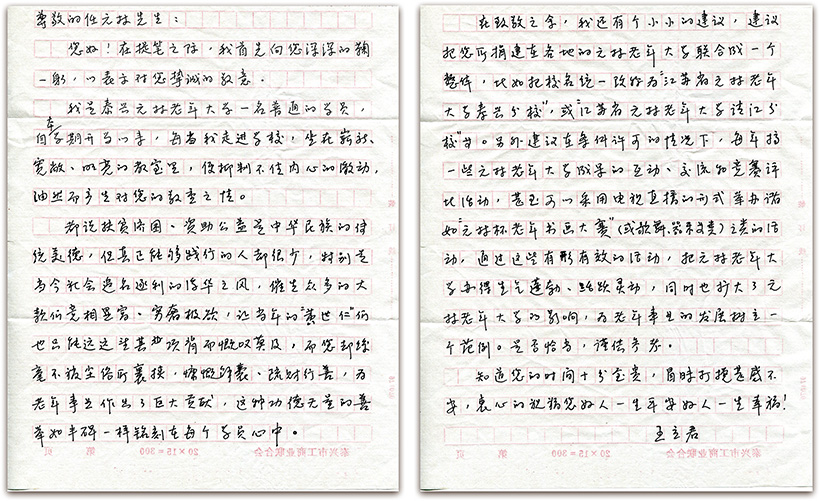 尊敬的任元林先生：
您好！在提笔之际，我首先向您深深的鞠
一躬，以表示对您挚诚的敬意。
我是泰兴元林老年大学一名普通的学员，
自本学期开学以来，每当我走进学校，坐在崭新、
宽敞、明亮的教室里，便抑制不住内心的激动，
油然而产生对您的敬重之情。
都说扶贫济困、资助公益是中华民族的传
统美德，但真正能够践行的人却很少，特别是
当今社会追名逐利的浮华之风，催生众多的大
款们竞相显富、穷奢极欲，让当年的"黄世仁"们
也只能远远望其项背而慨叹莫及，而您却丝
毫不被尘俗所裹挟，慷慨解囊、疏财行善，为
老年事业作出了巨大贡献，这种功德无量的善
举如丰碑一样铭刻在每个学员心中。
泰兴市工商业联合会 20×15=300 第 页
在致敬之余，我还有个小小的建议，建议
把您所捐建在各地的元林老年大学联合成一个
整体，比如把校名统一改的为"江苏省元林老年
大学泰兴分校"，或"江苏省元林老年大学靖江分
校"等。另外建议在条件许可的情况下，每年搞
一些元林老年大学成果的互动、交流和竞赛评
比活动，甚至可以采用电视直播的形式举办诸
如"元林杯老年书画大赛"(或歌舞、器乐文类)之类的活
动，通过这些有形有效的活动，把元林老年大
学办得生气蓬勃、活跃灵动，同时也扩大了元
林老年大学的影响，为老年事业的发展树立一
个范例。是否恰当，谨供参考。
知道您的时间十分金贵，届时打搅甚感不
安，衷心的祝福您好人一生平安好人一生幸福！
王立君
泰兴市工商业联合会 20×15=300 第 页